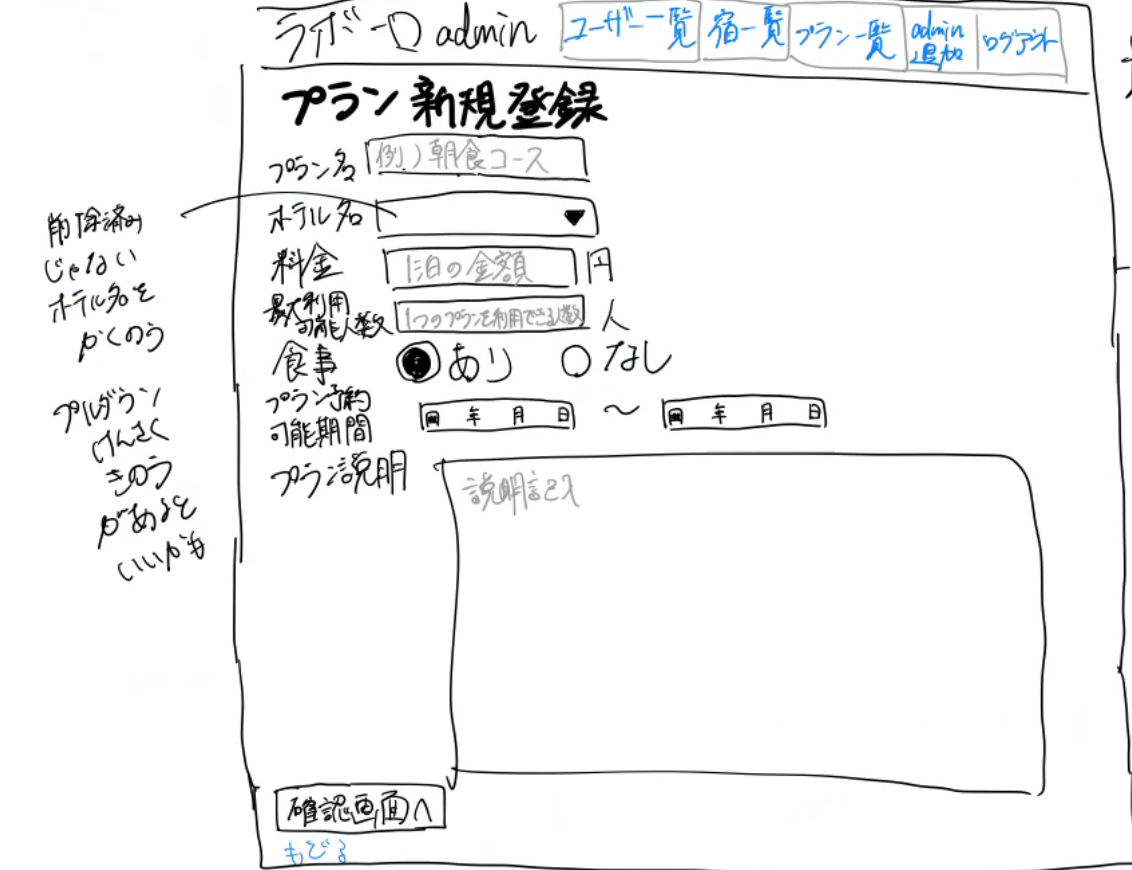 admin
ユーザー一覧
宿一覧
プラン一覧
admin
追加
ログアウト
プラン新規登録
プラン名
例.) 朝食コース
ホテル名
料金
1泊の金額
円
最大利用
可能人数
1つのプランを利用できる人数
人
食事
あり
なし
プラン予約
可能期間
年 月 日 〜 年 月 日
プラン説明
説明記入
確認画面へ
もどる
削除済み
じゃない
ホテル名を
かくのう
プルダウン
けんさく
きのう
があると
いいかも